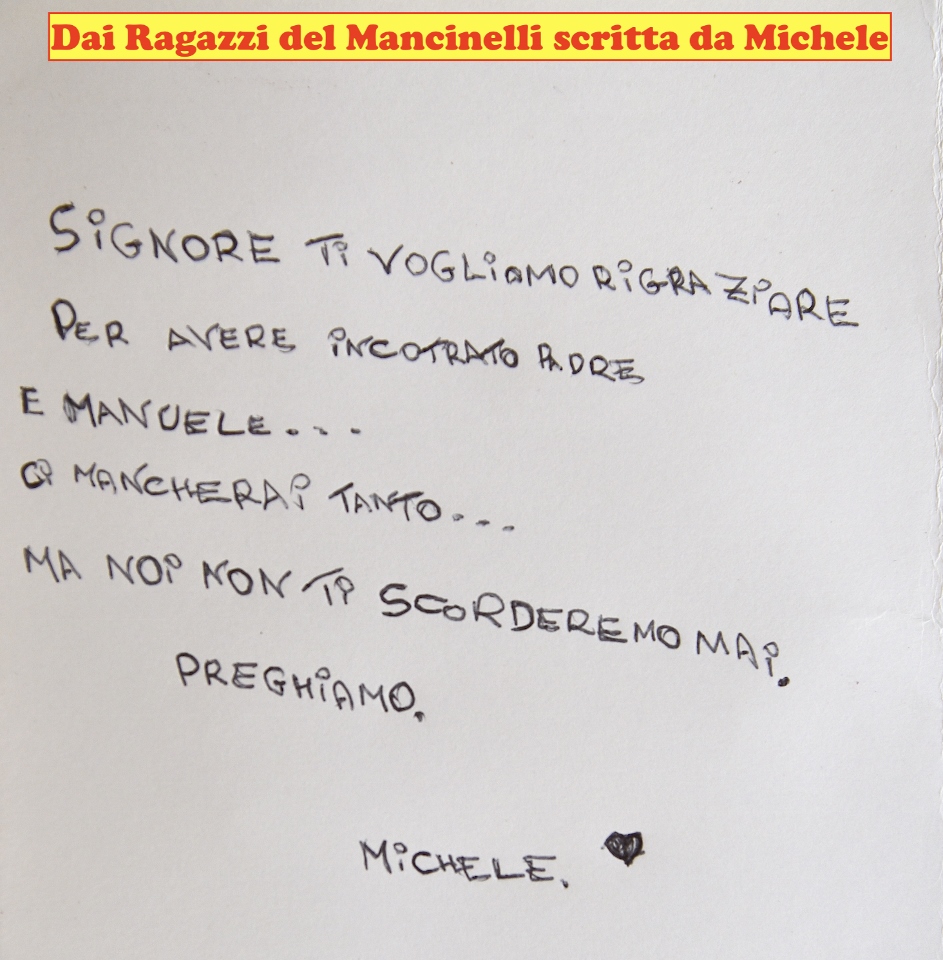 Dai Ragazzi del Mancinelli scritta da Michele
SiGNORE Ti VOGLiaMO RiGRAZiARE
PER AVERE iNCOTRATO PADRE
E MANUELE...
Ci MANCHERAi TANTO...
MA NOi NON Ti SCORDEREMO MAi.
PREGHiAMO.
MiCHELE.